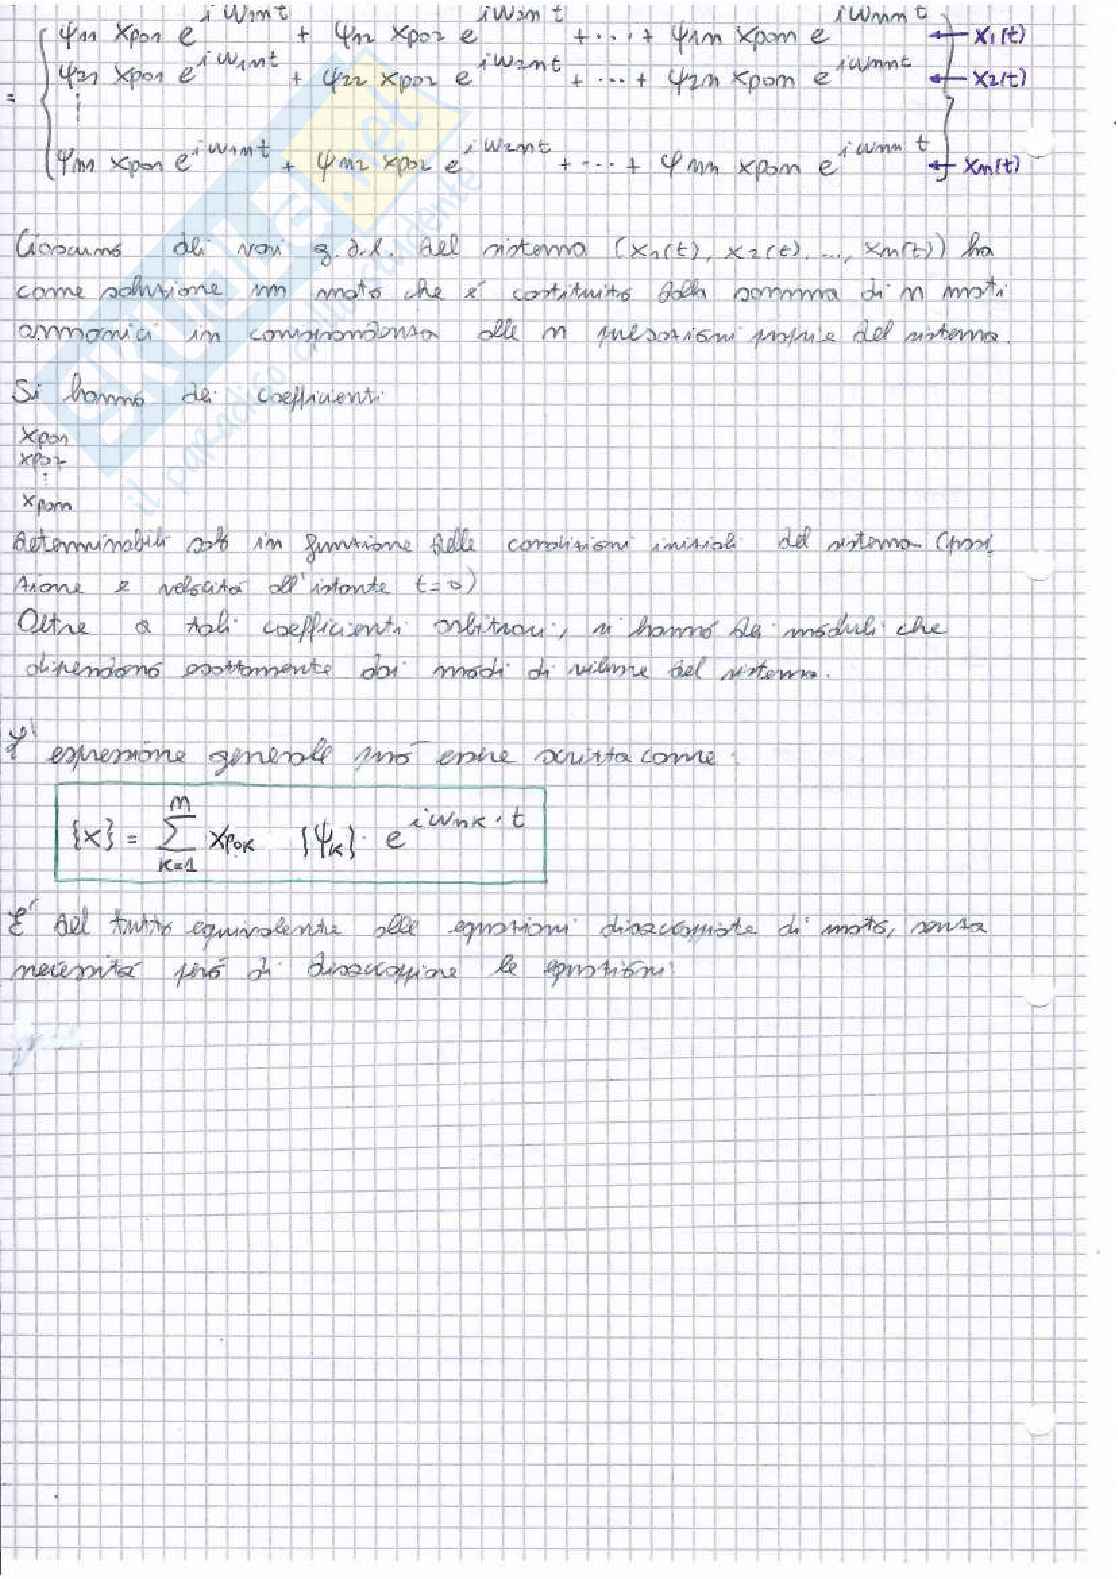 = { ψ11 xp01 e^{iω1nt} + ψ12 xp02 e^{iω2nt} + ... + ψ1n xp0n e^{iωnnt} ← x1(t)
ψ21 xp01 e^{iω1nt} + ψ22 xp02 e^{iω2nt} + ... + ψ2n xp0n e^{iωnnt} ← x2(t)
⋮
ψn1 xp01 e^{iω1nt} + ψn2 xp02 e^{iω2nt} + ... + ψnn xp0n e^{iωnnt} } ← xn(t)
Ciascuno dei vari g.d.l. del sistema (x1(t), x2(t), ..., xn(t)) ha
come soluzione un moto che è costituito dalla somma di n moti
armonici in corrispondenza alle n pulsazioni proprie del sistema.
Si hanno dei coefficienti
xp01
xp02
⋮
xp0n
determinabili solo in funzione delle condizioni iniziali del sistema (posi
zione e velocità all'istante t=0)
Oltre a tali coefficienti arbitrari, si hanno dei moduli che
dipendono esattamente dai modi di vibrare del sistema.
L'espressione generale può essere scritta come:
{x} = Σ_{k=1}^{n} xp0k {ψk} · e^{iωnk·t}
E' del tutto equivalente alle equazioni disaccoppiate di moto, senza
necessità però di disaccoppiare le equazioni.
SKUOLA.net
il paradiso dello studente